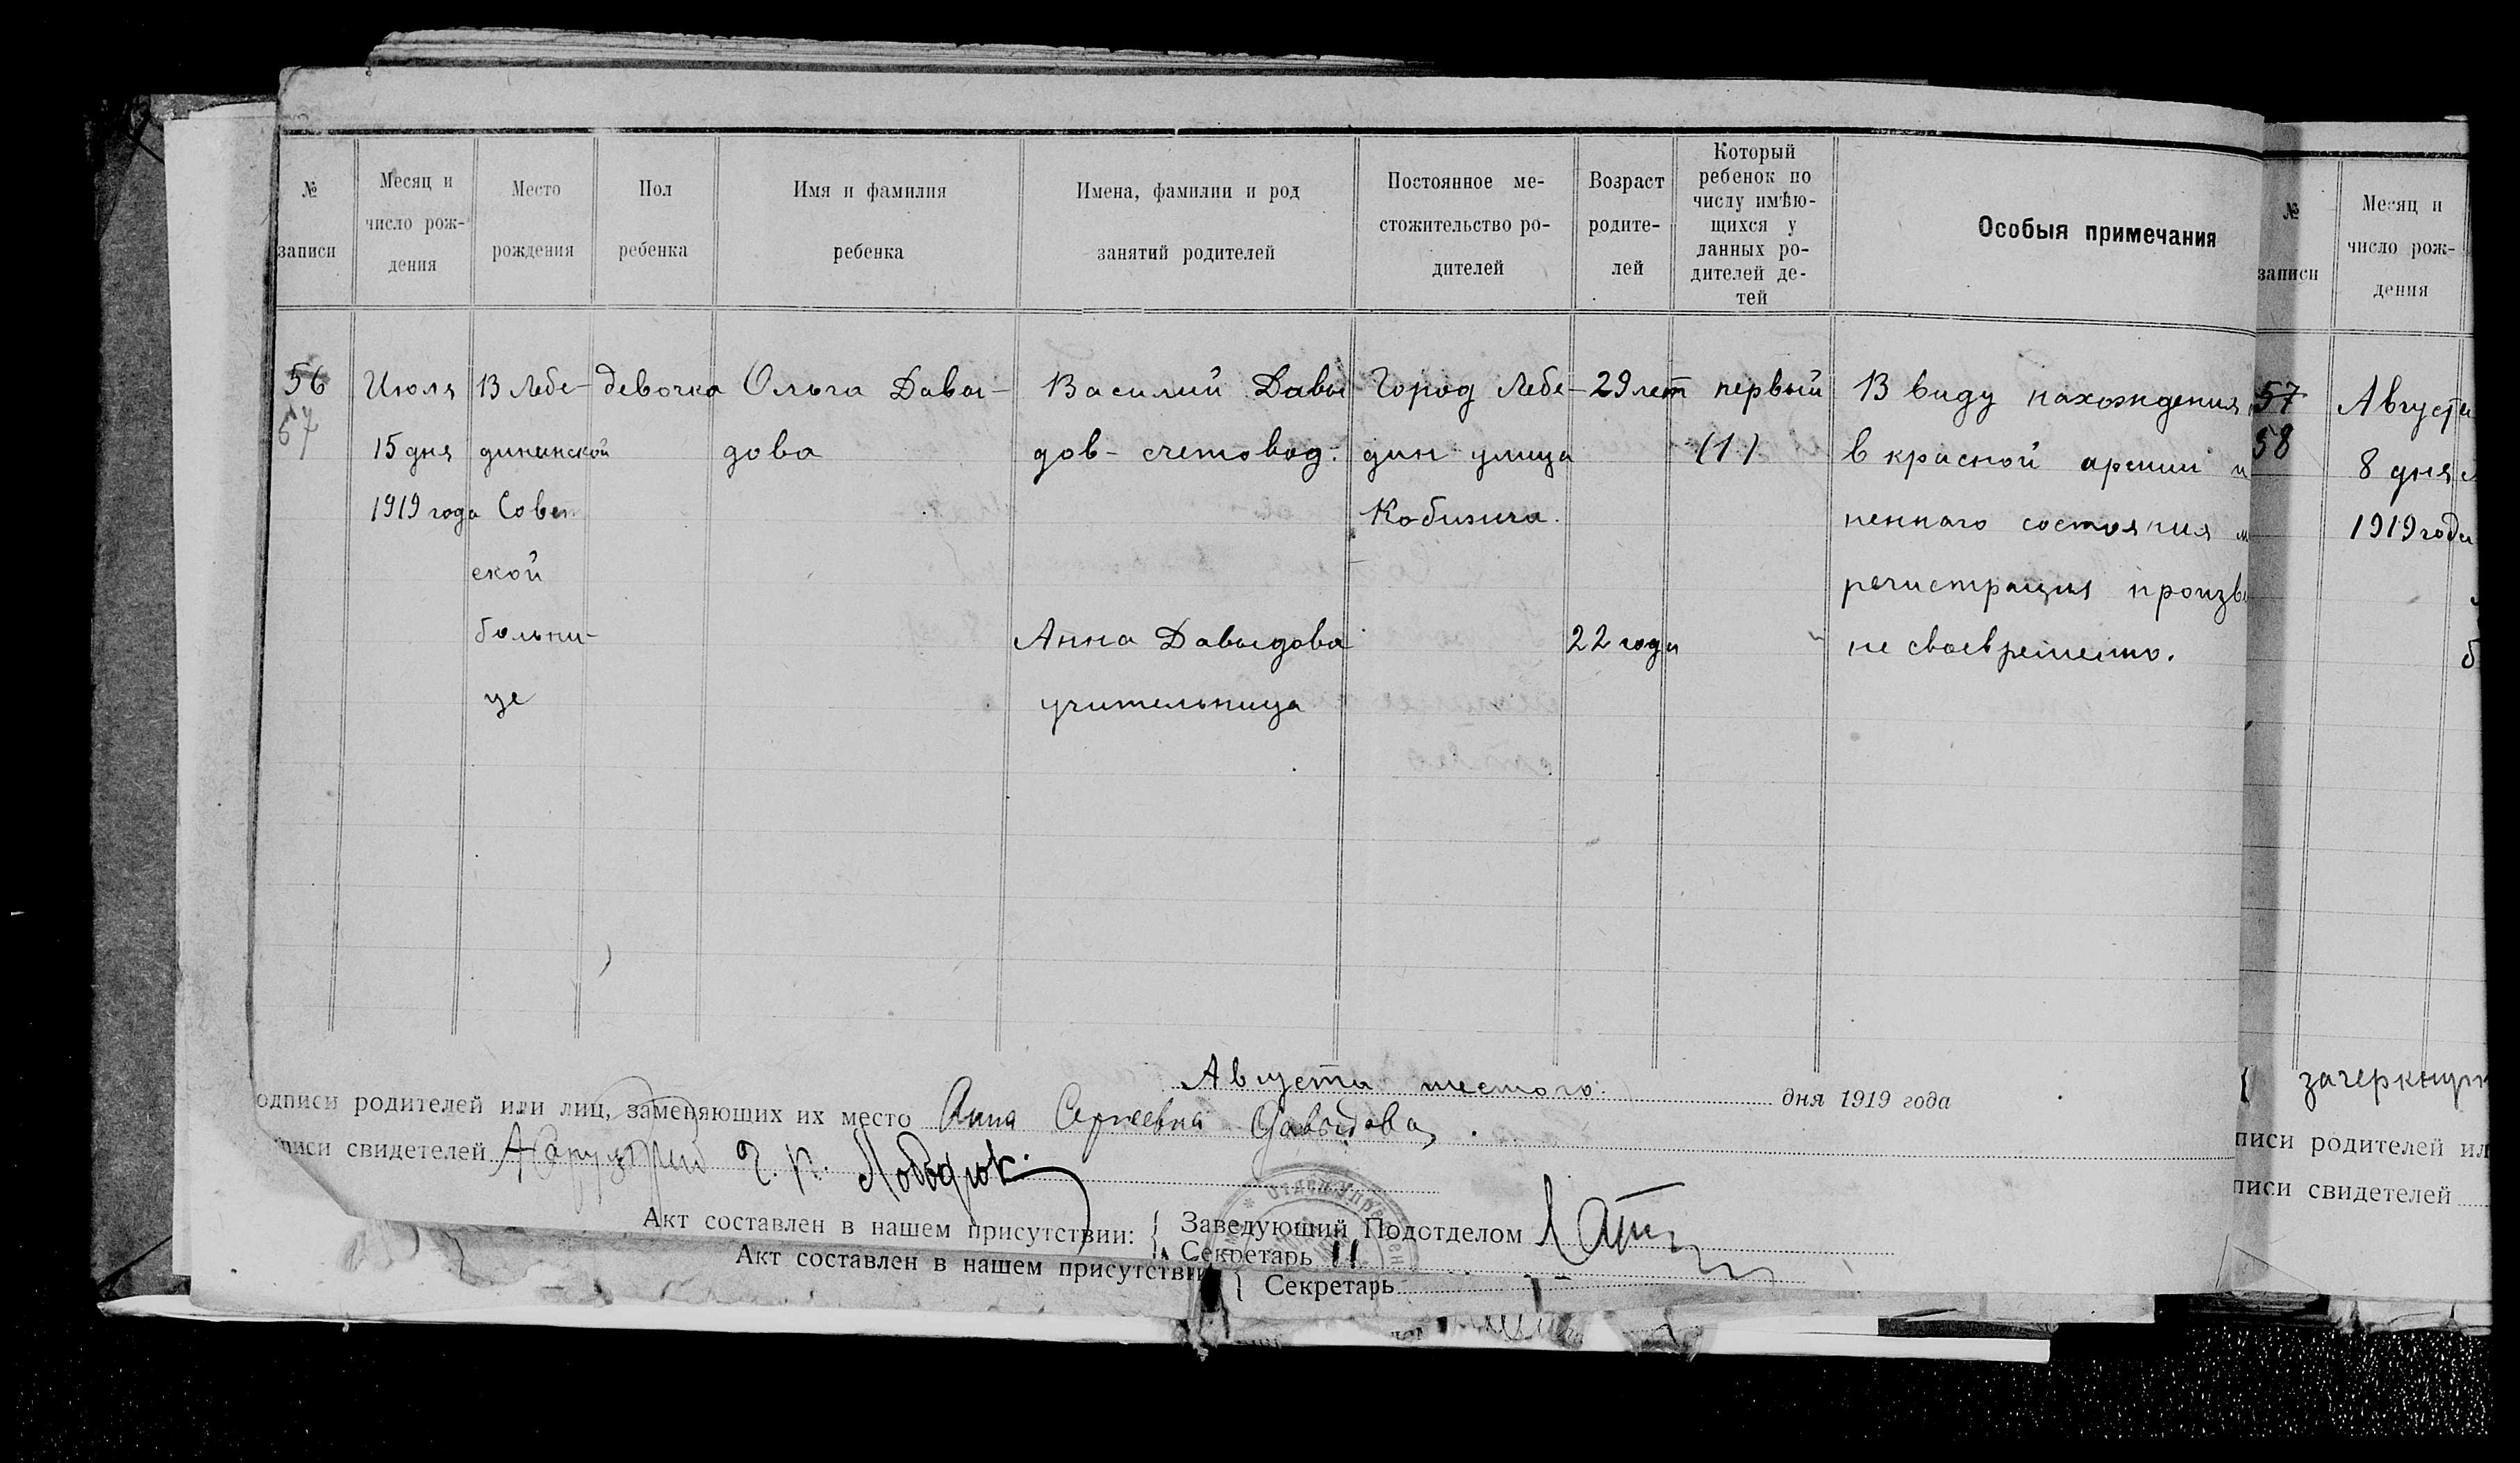 № записи
Месяц и число рождения
Место рождения
Пол ребенка
Имя и фамилия ребенка
Имена, фамилии и род занятий родителей
Постоянное ме-
стожительство ро-
дителей
Возраст
родите-
лей
Который
ребенок по
числу имѣю-
щихся у
данных ро-
дителей де-
тей
Особыя примечания
56
57
Июля
15 дня
1919 года
В Лебе-
динской
Совет
ской
больни-
це
девочка
Ольга Давы-
дова
Василий Давы
дов - счетовод.
Анна Давыдова
учительница
Город Лебе-
дин улица
Кобижча.
29 лет
22 года
первый
(1)
В виду нахождения
в красной армии и
ненного состояния м
регистрация произве
не своевременно.
Августа шестого дня 1919 года
одписи родителей или лиц, заменяющих их место Анна Сергеевна Давыдова.
писи свидетелей
Акт составлен в нашем присутствии:
Заведующий Подотделом
Секретарь
Акт составлен в нашем присутстви
Секретарь
№
записи
Месяц и
число рож-
дения
57
58
Августа
8 дня
1919 года
зачеркнут
писи родителей ил
писи свидетелей